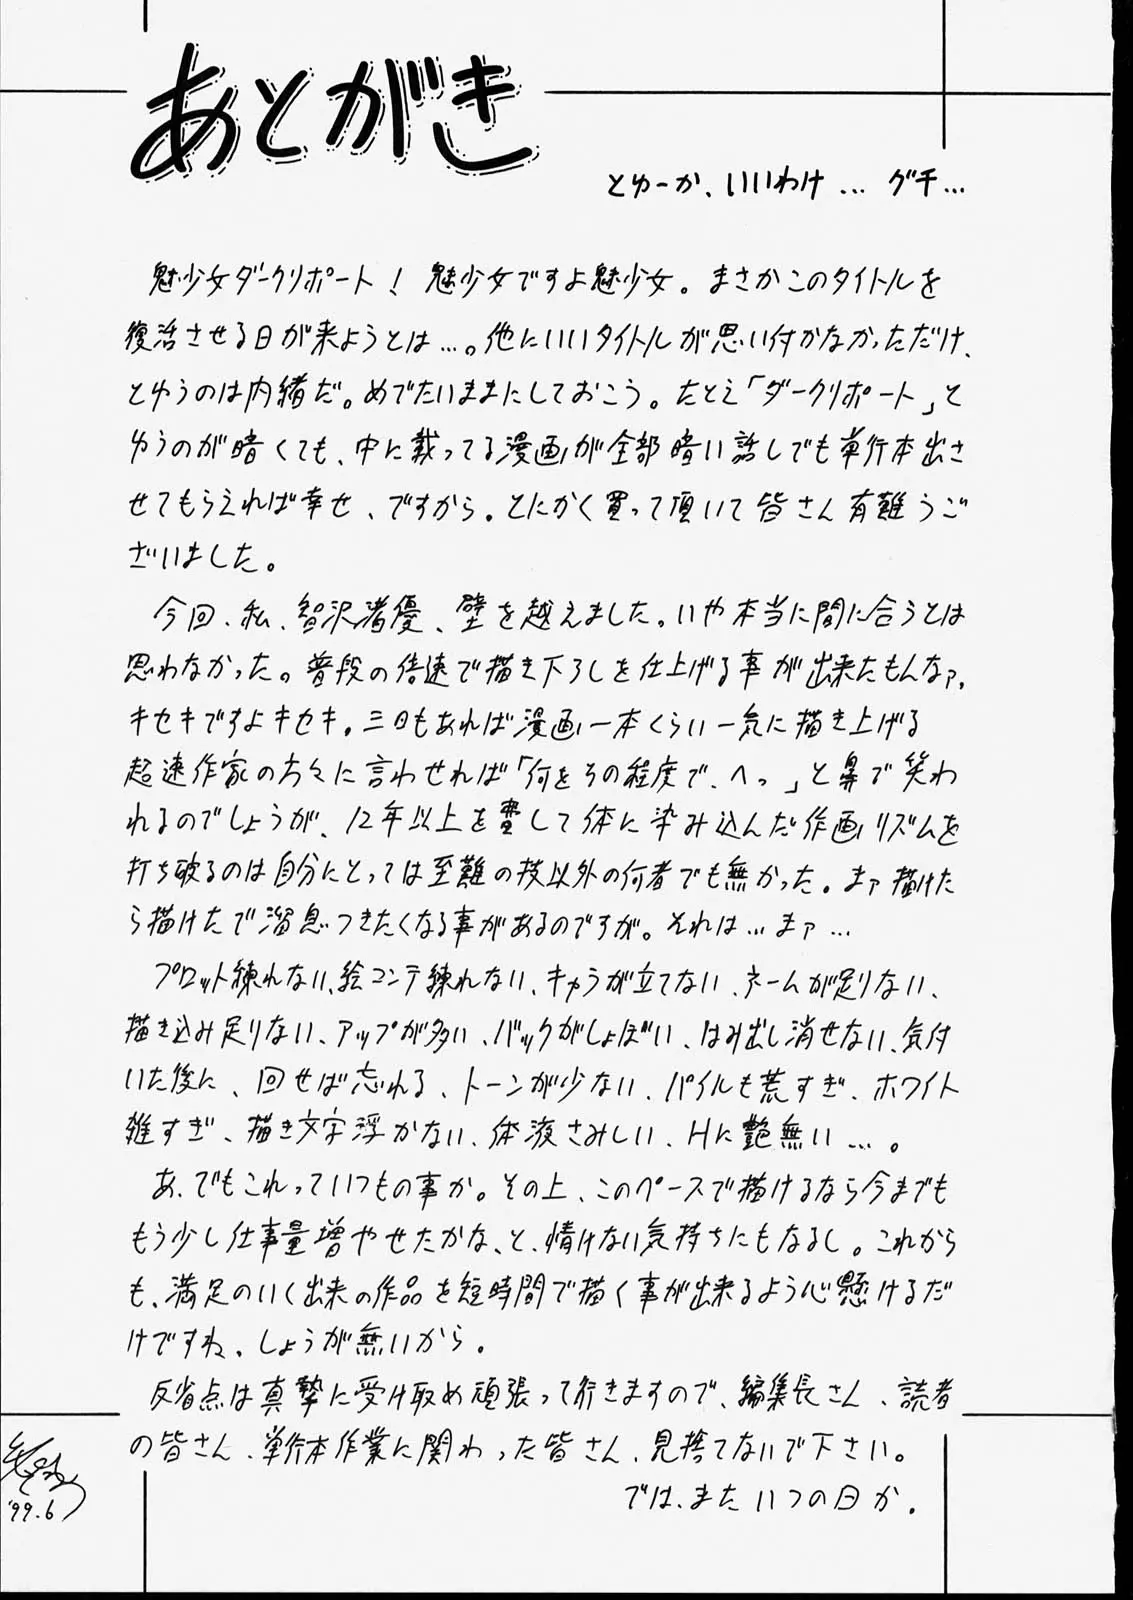 あとがき
とゆーか、いいわけ… グチ…
魅少女ダークリポート！ 魅少女ですよ魅少女。まさかこのタイトルを
復活させる日が来ようとは…。他にいいタイトルが思い付かなかっただけ、
とゆうのは内緒だ。めでたいままにしておこう。たとえ「ダークリポート」と
ゆうのが暗くても、中に載ってる漫画が全部暗い話しでも単行本出さ
せてもらえれば幸せ、ですから。とにかく買って頂いて皆さん有難うご
ざいました。
今回、私、智沢渚優、壁を越えました。いや本当に間に合うとは
思わなかった。普段の倍速で描き下ろしを仕上げる事が出来たもんなァ。
キセキですよキセキ。三日もあれば漫画一本くらい一気に描き上げる
超速作家の方々に言わせれば「何をその程度で、へっ」と鼻で笑わ
れるのでしょうが、12年以上を費して体に染み込んだ作画リズムを
打ち破るのは自分にとっては至難の技以外の何者でも無かった。まァ描けた
ら描けたで溜息つきたくなる事があるのですが。それは…まァ…
プロット練れない、絵コンテ練れない、キャラが立てない、ネームが足りない、
描き込み足りない、アップが多い、バックがしょぼい、はみ出し消せない、気付
いた後に、回せば忘れる、トーンが少ない、パイルも荒すぎ、ホワイト
雑すぎ、描き文字浮かない、体液さみしい、Hに艶無い…。
あ、でもこれっていつもの事か。その上、このペースで描けるなら今までも
もう少し仕事量増やせたかな、と、情けない気持ちにもなるし。これから
も、満足のいく出来の作品を短時間で描く事が出来るよう心懸けるだ
けですね、しょうが無いから。
反省点は真摯に受け取め頑張って行きますので、編集長さん、読者
の皆さん、単行本作業に関わった皆さん、見捨てないで下さい。
では、またいつの日か。
'99.6